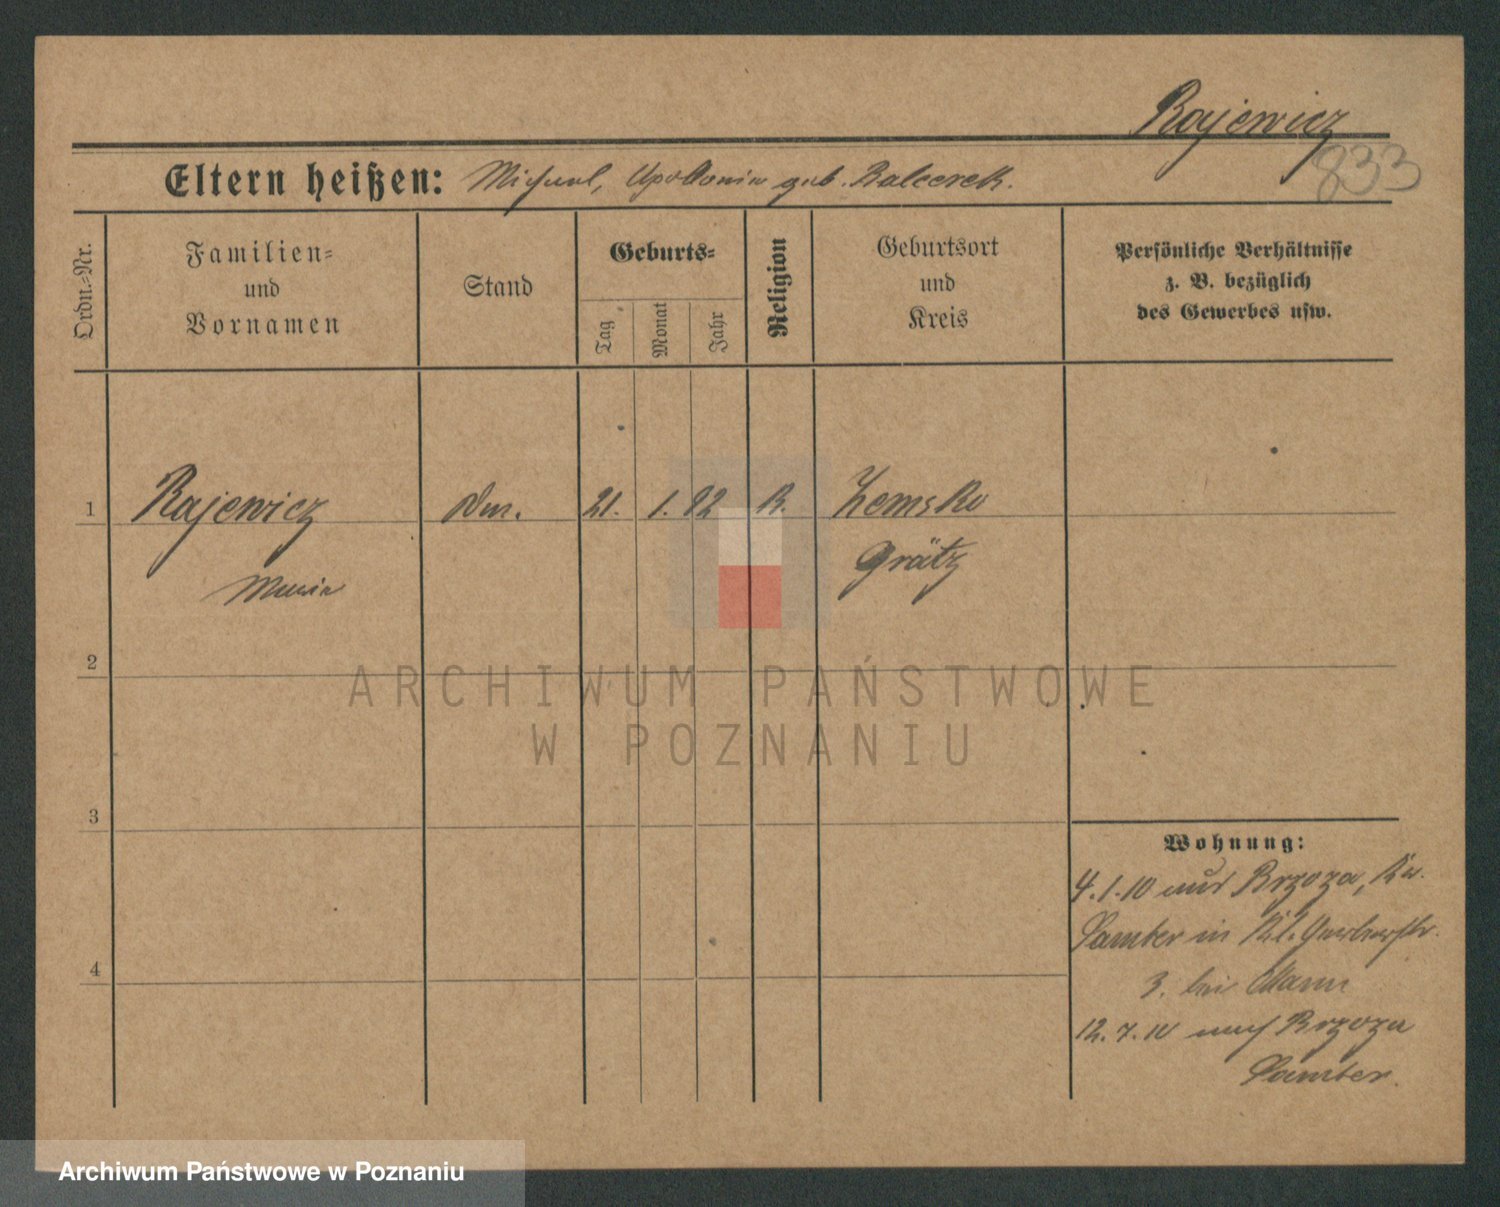 Rajewicz
833
Eltern heißen: Michael, Apollonia geb. Balcerek.
Ordn.-Nr.
Familien-
und
Vornamen
Stand
Geburts-
Tag
Monat
Jahr
Religion
Geburtsort
und
Kreis
Persönliche Verhältnisse
z. B. bezüglich
des Gewerbes usw.
1
Rajewicz
21. 1. 82 K. Zemsko
Grätz
Maria
2
ARCHIWUM PAŃSTWOWE
W POZNANIU
3
Wohnung:
4.1.10 aus Brzoza, Kr.
Samter in Kl. Gerberstr.
3. bei Mann
4
12.7.10 nach Brzoza
Samter.
Archiwum Państwowe w Poznaniu